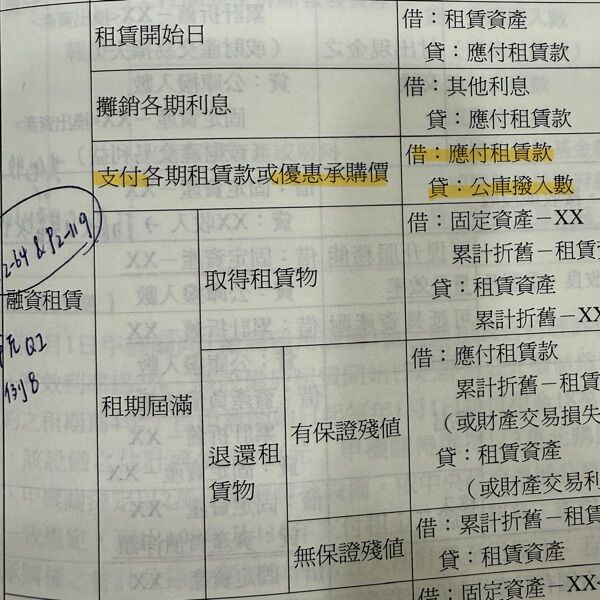 租賃開始日
借：租賃資產
貸：應付租賃款
攤銷各期利息
借：其他利息
貸：應付租賃款
支付各期租賃款或優惠承購價
借：應付租賃款
貸：公庫撥入數
2-64 & P2-119
融資租賃
Q2
例8
租期屆滿
取得租賃物
借：固定資產－XX
累計折舊－租賃
貸：租賃資產
累計折舊－XX
退還租
賃物
有保證殘值
借：應付租賃款
累計折舊－租賃
（或財產交易損失
貸：租賃資產
（或財產交易利
無保證殘值
借：累計折舊－租賃
貸：租賃資產
借：固定資產－XX